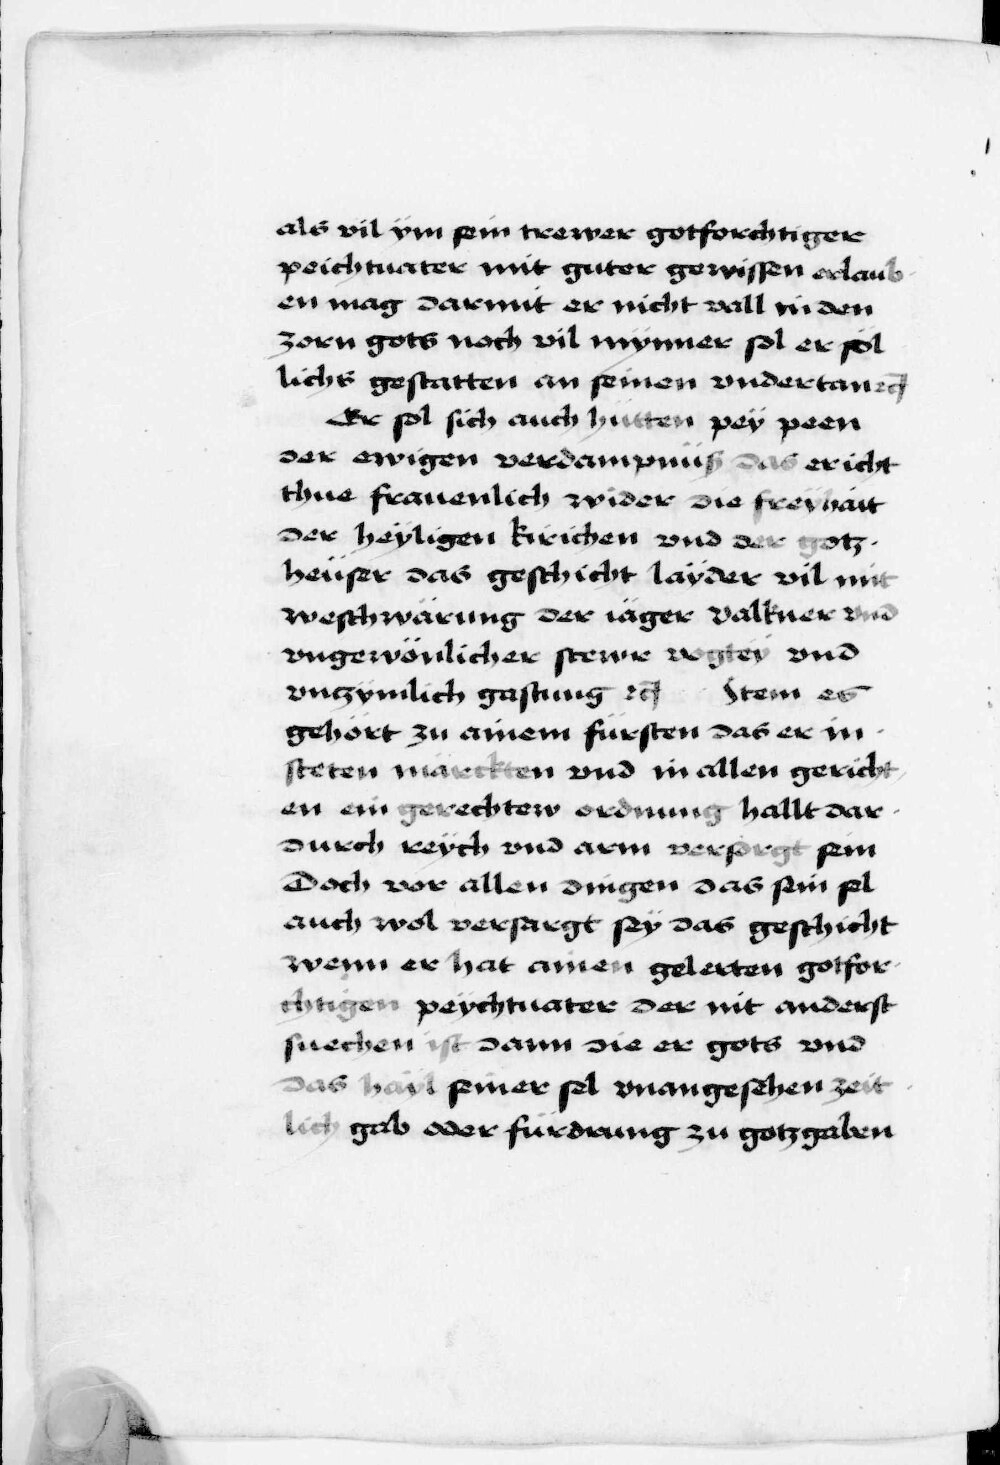 als vil ÿm sein trewer gotforchtiger
peichtuater mit guter gewissen erlaub
en mag darmit er nicht vall in den
zorn gots noch vil mÿnner sol er söl
lichs gestatten an seinen vndertan ꝛc̄
Er sol sich auch hütten peÿ peen
der ewigen verdampnüß das er icht
thue frauenlich wider die freÿhait
der heÿligen kirichen vnd der gotz
heüser das geschicht laÿder vil mit
weschwärung der iäger valkner vnd
vngewönlicher stewr vogteÿ vnd
vnczÿmlich gastung ꝛc̄ Item es
gehört zu ainem fürsten das er in
steten märckten vnd in allen gericht
en ein gerechtew ordnung hallt dar
durch reÿch vnd arm versorgt sein
Doch vor allen dingen das sein sel
auch wol versargt seÿ das geschicht
wenn er hat ainen gelerten gotfor
chtigen peÿchtuater der nit anderst
suechen ist dann die er gots vnd
das haÿl seiner sel vnangesehen zeit
lich gab oder fürdrung zu gotzgaben